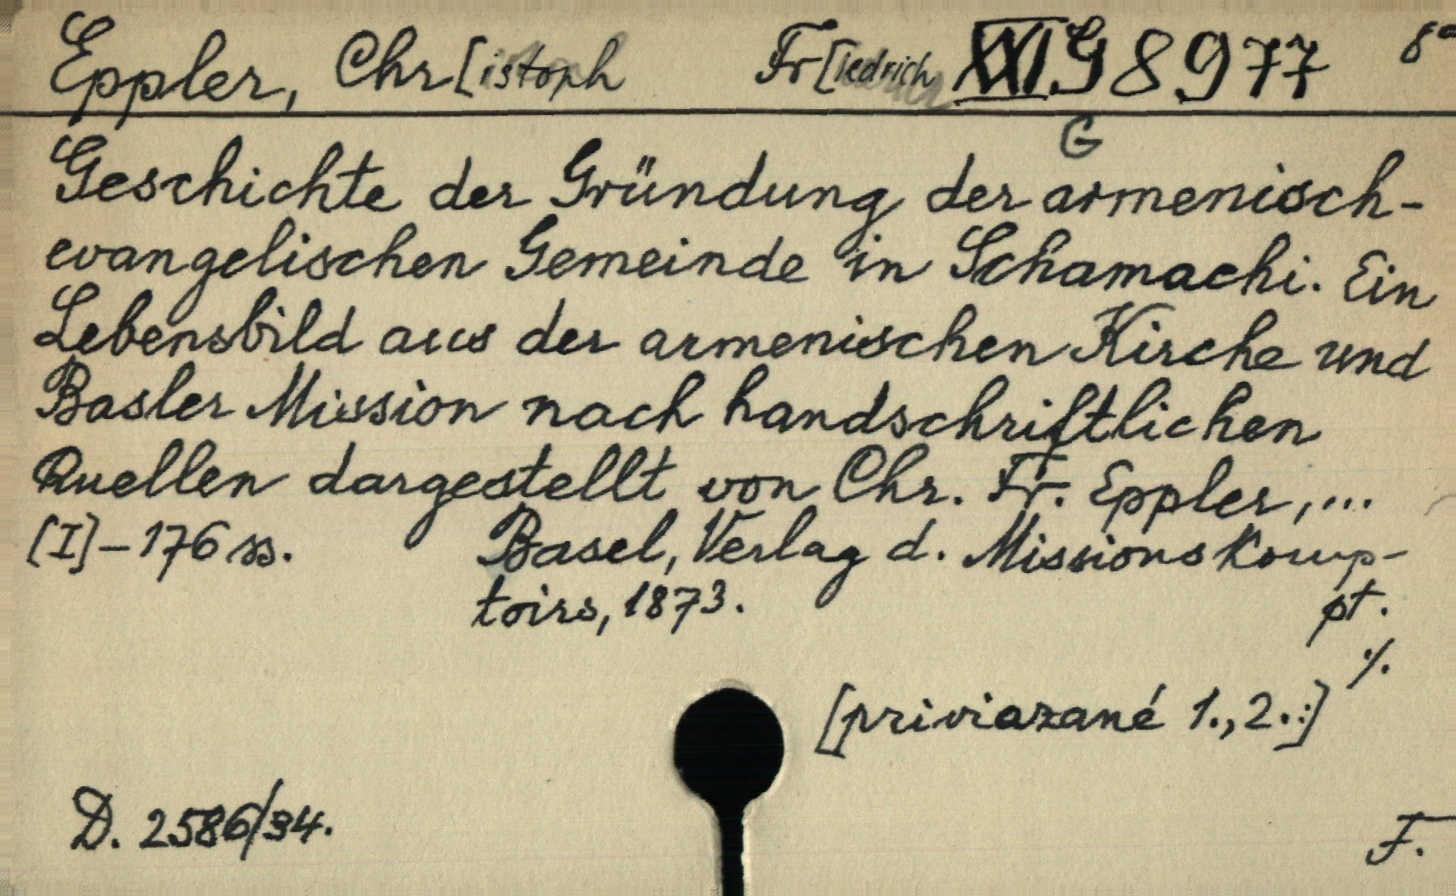 Eppler, Chr[istoph Fr[iedrich XXI G 8977 8°
G
Geschichte der Gründung der armenisch-
evangelischen Gemeinde in Schamachi. Ein
Lebensbild aus der armenischen Kirche und
Basler Mission nach handschriftlichen
Quellen dargestellt von Chr. Fr. Eppler,...
[I]-176 ss. Basel, Verlag d. Missionskomp-
toirs, 1873. pt.
·/.
[priviazané 1., 2.:]
D. 2586/34.
F.